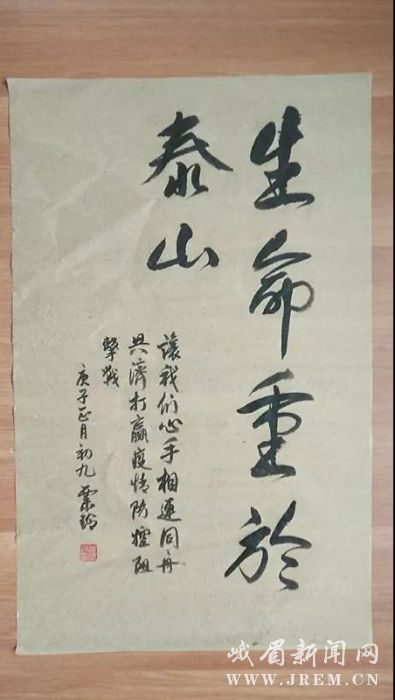 生命重於
泰山
讓我们心手相連同舟
共濟打贏疫情防控阻
擊戰
庚子正月初九
峨眉新闻网
WWW.JREM.CN